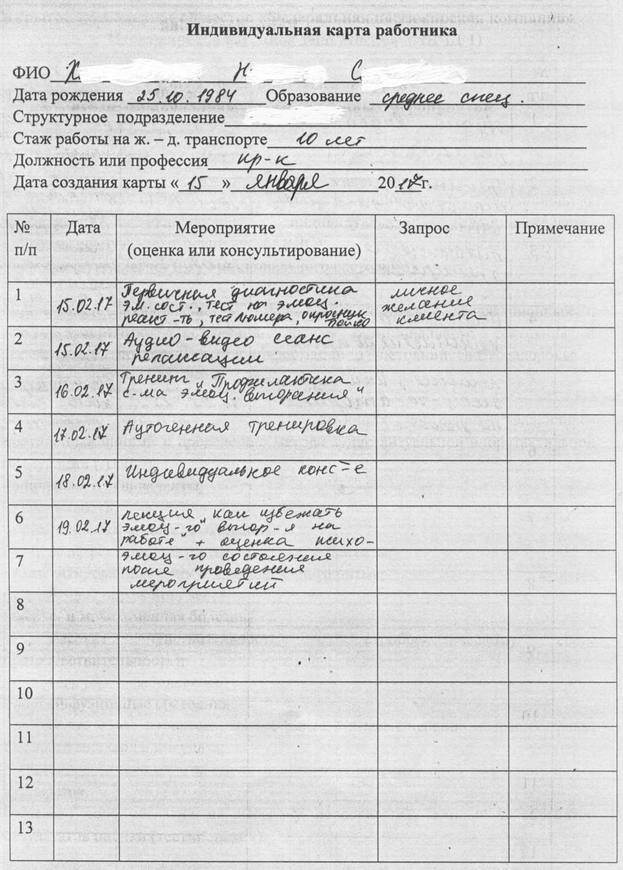 Индивидуальная карта работника
ФИО Х Н С
Дата рождения 25.10.1984 Образование среднее спец.
Структурное подразделение
Стаж работы на ж. – д. транспорте 10 лет
Должность или профессия пр-к
Дата создания карты « 15 » января 2017г.
№ п/п Дата Мероприятие (оценка или консультирование) Запрос Примечание
1 15.02.17 Первичная диагностика личное
эм. сост., тест на эмоц. желание
реакт-ть, тест Люшера, опросник клиента
2 15.02.17 Аудио-видео сеанс
релаксации
3 16.02.17 Тренинг „Профилактика
с-ма эмоц. выгорания"
4 17.02.17 Аутогенная тренировка
5 18.02.17 Индивидуальное конс-е
6 19.02.17 лекция „как избежать
эмоц-го выгор-я на
работе" + оценка психо-
7 эмоц-го состояния
после проведения
мероприятий
8
9
10
11
12
13